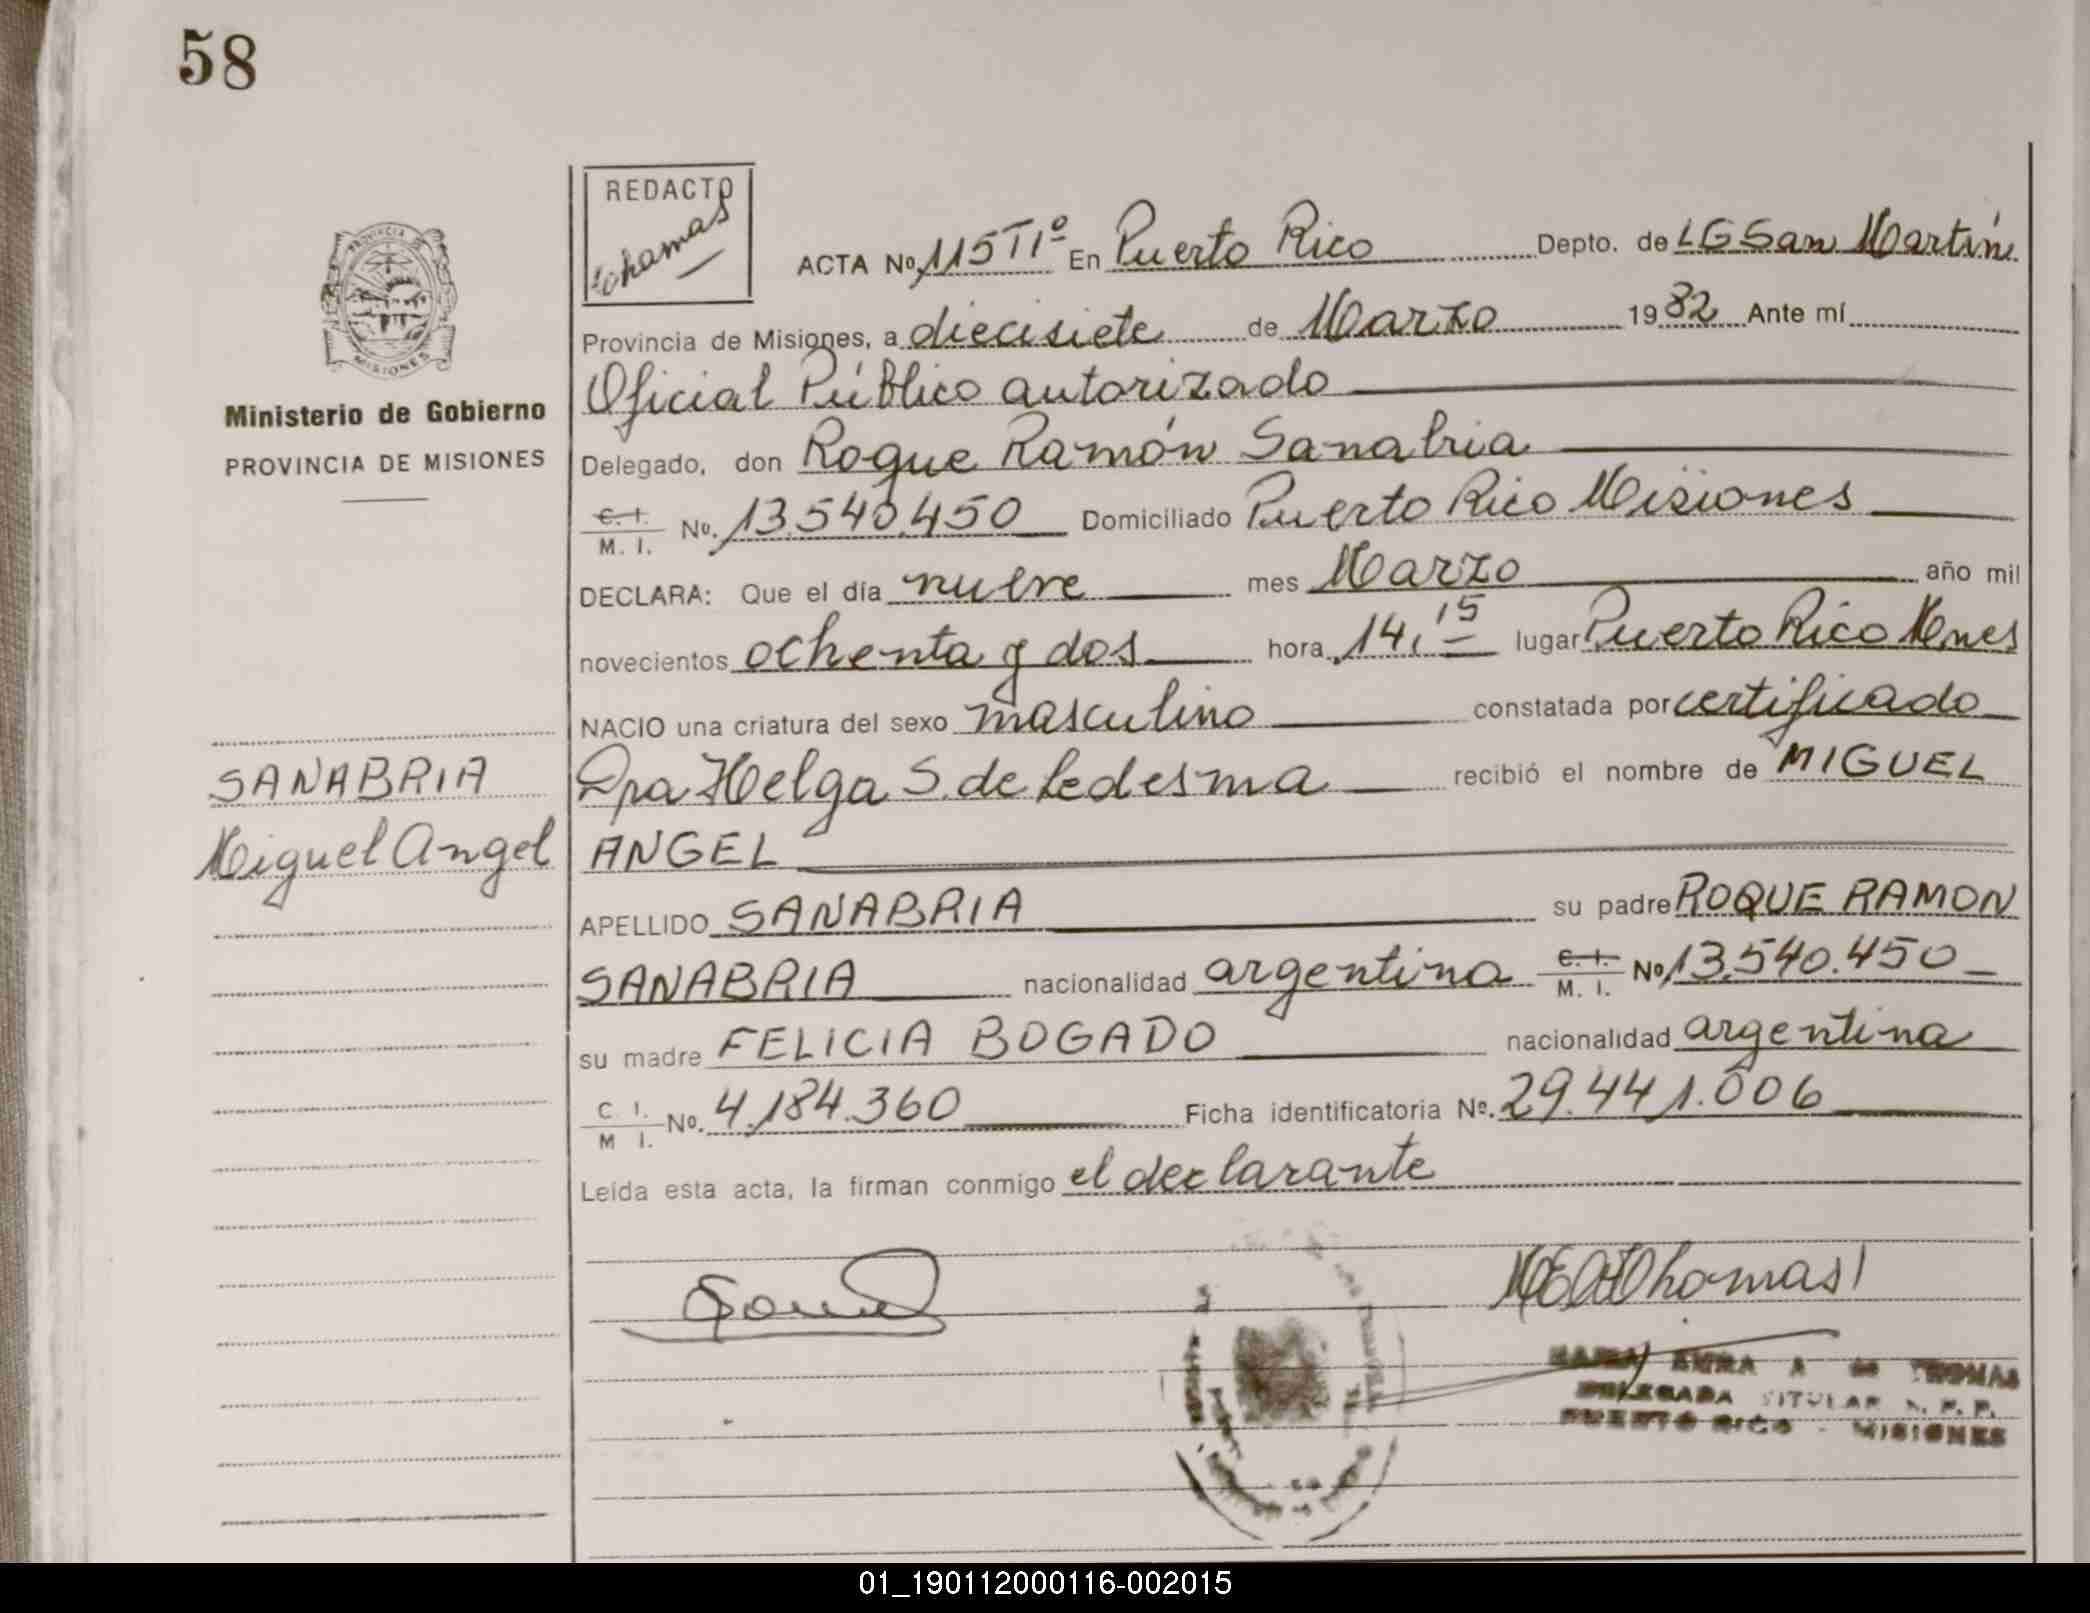 58
REDACTO
Thomas
PROVINCIA DE
MISIONES
Ministerio de Gobierno
PROVINCIA DE MISIONES
SANABRIA
Miguel Angel
ACTA Nº 115 Tº1º En Puerto Rico Depto. de LG San Martín
Provincia de Misiones, a diecisiete de Marzo 1982 Ante mí
Oficial Público autorizado
Delegado, don Roque Ramón Sanabria
C. I. M. I. No. 13.540.450 Domiciliado Puerto Rico Misiones
DECLARA: Que el día nueve mes Marzo año mil
novecientos ochenta y dos hora 14,15 lugar Puerto Rico Mnes
NACIO una criatura del sexo masculino constatada por certificado
Dra Helga S. de Ledesma recibió el nombre de MIGUEL
ANGEL
APELLIDO SANABRIA su padre ROQUE RAMON
SANABRIA nacionalidad argentina C. I. M. I. Nº 13.540.450
su madre FELICIA BOGADO nacionalidad argentina
C. I. M I. No. 4.184.360 Ficha identificatoria Nº. 29.441.006
Leída esta acta, la firman conmigo el declarante
THOMAS
DELEGADA TITULAR
PUERTO RICO - MISIONES
01_190112000116-002015